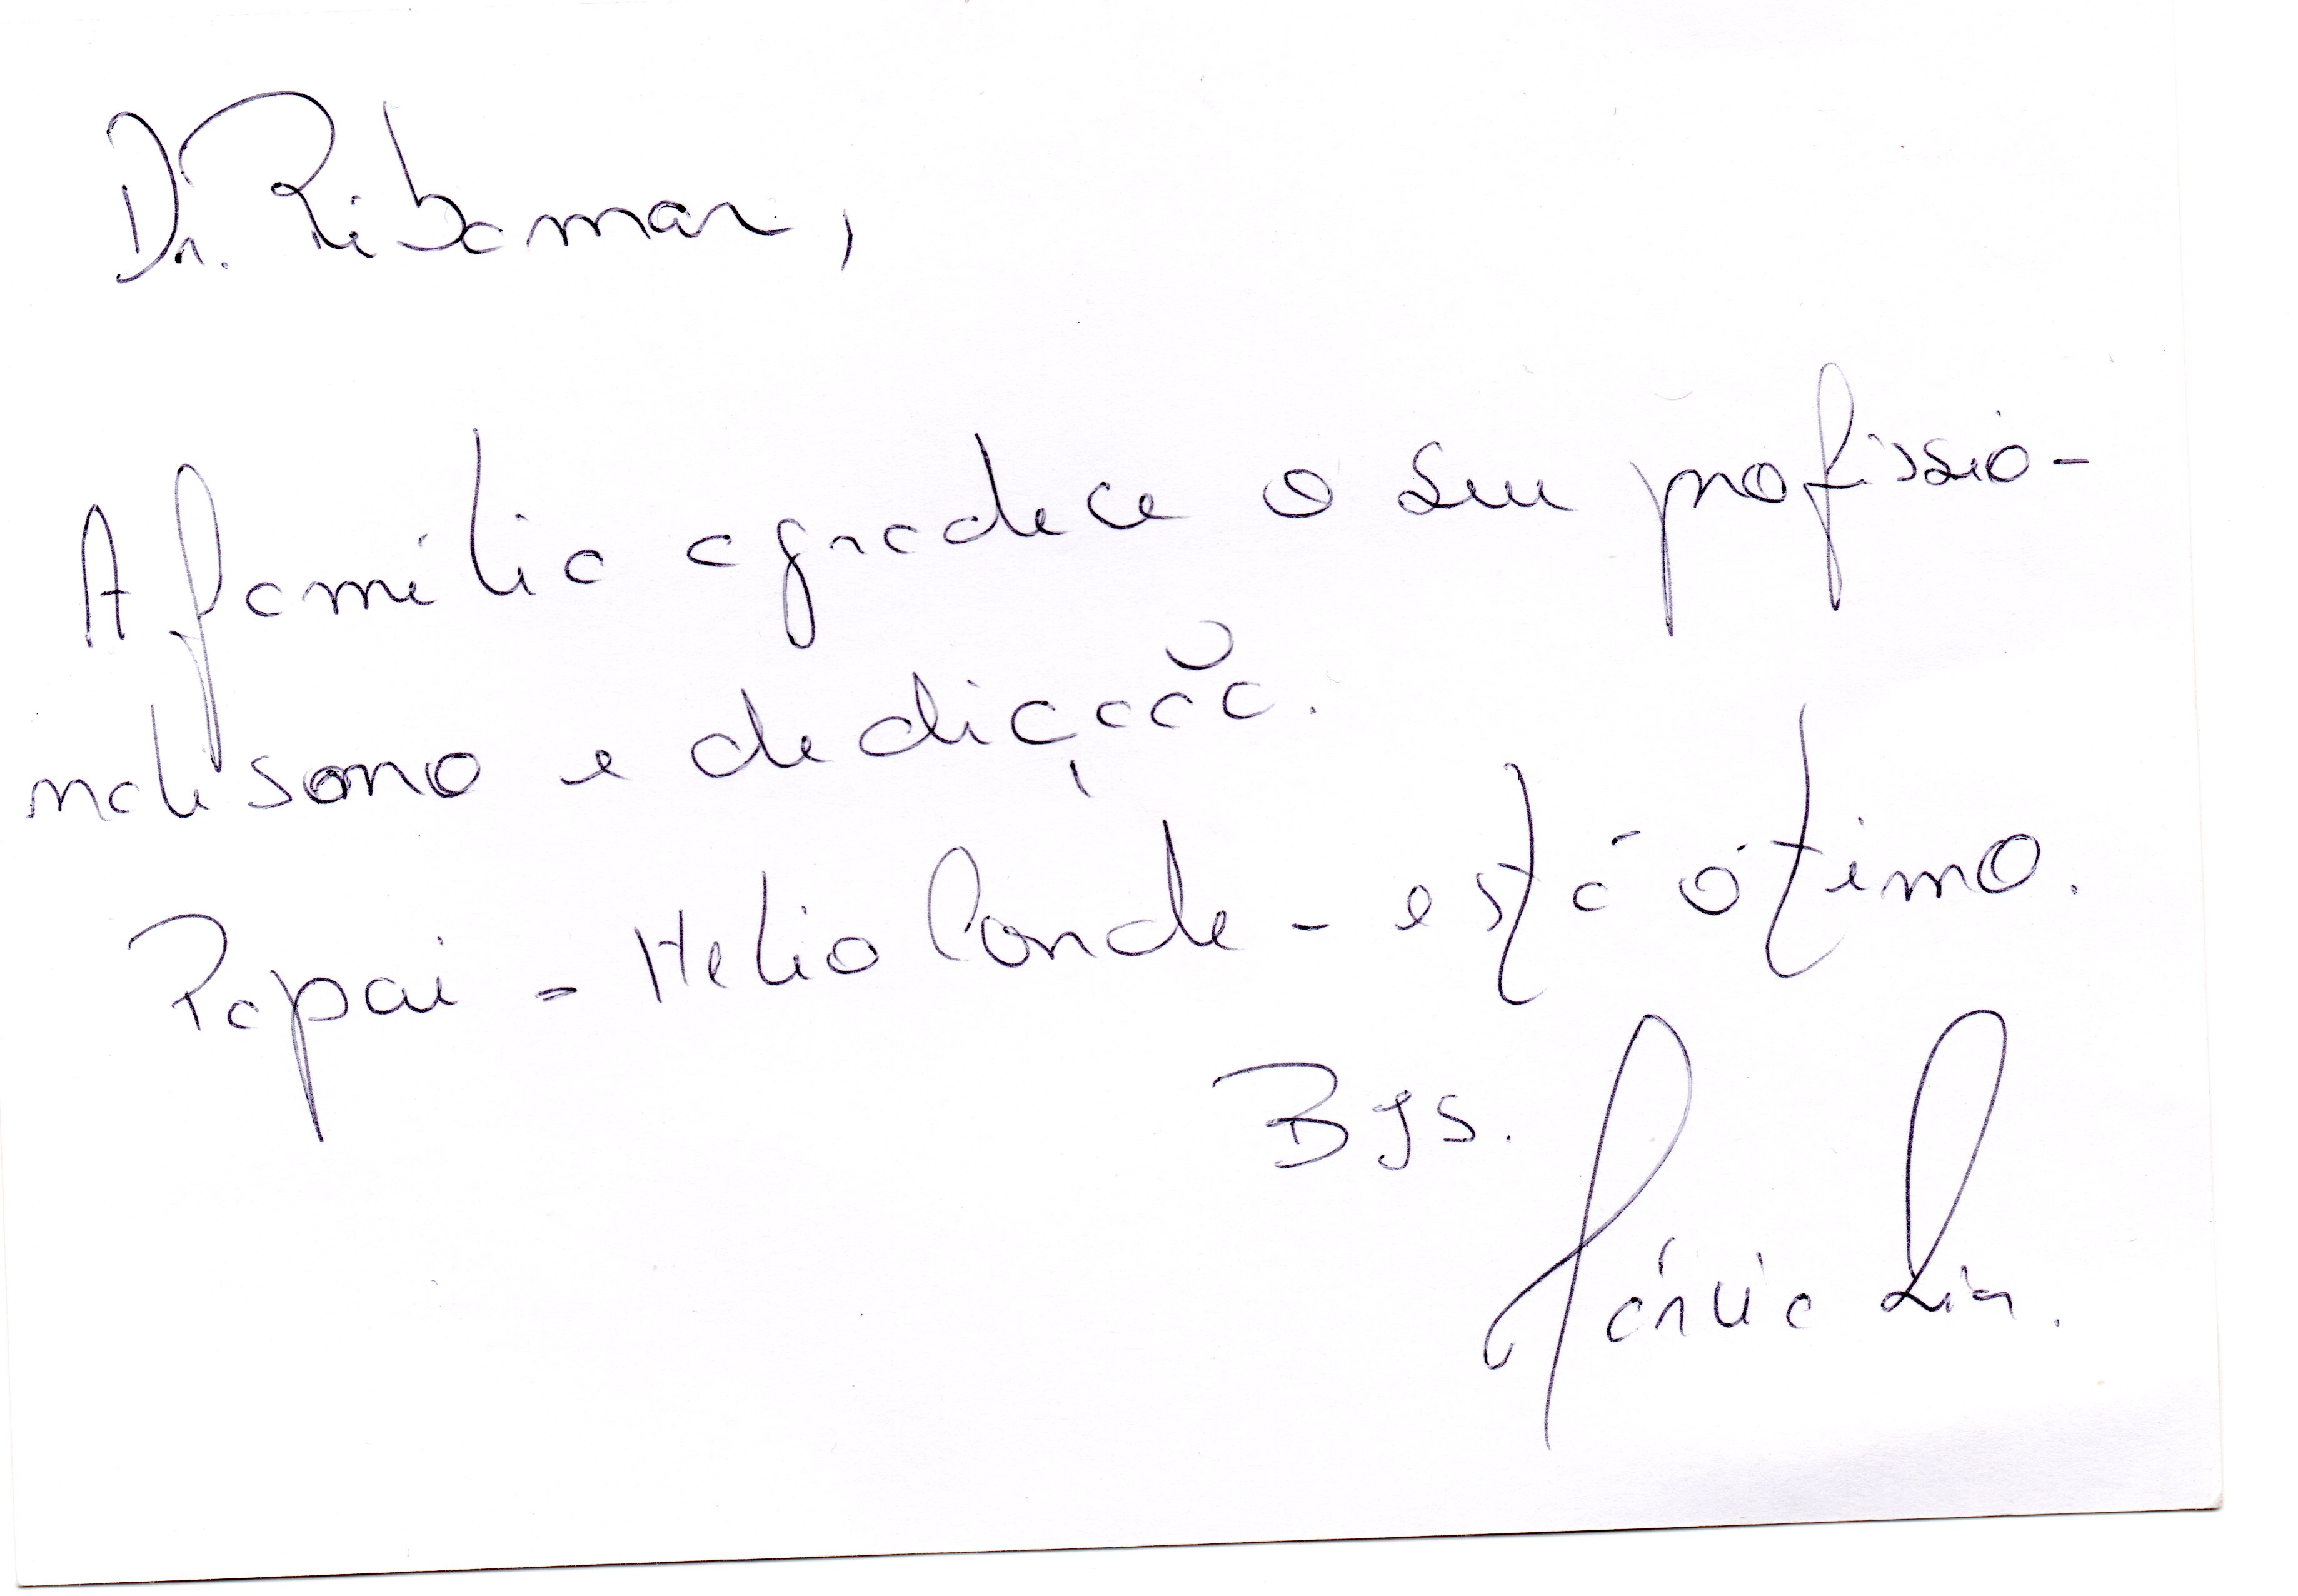 Dr. Ribamar,
A família agradece o seu profissio-
nalisono e dedicação.
Papai - Helio Conde - está ótimo.
BJS.